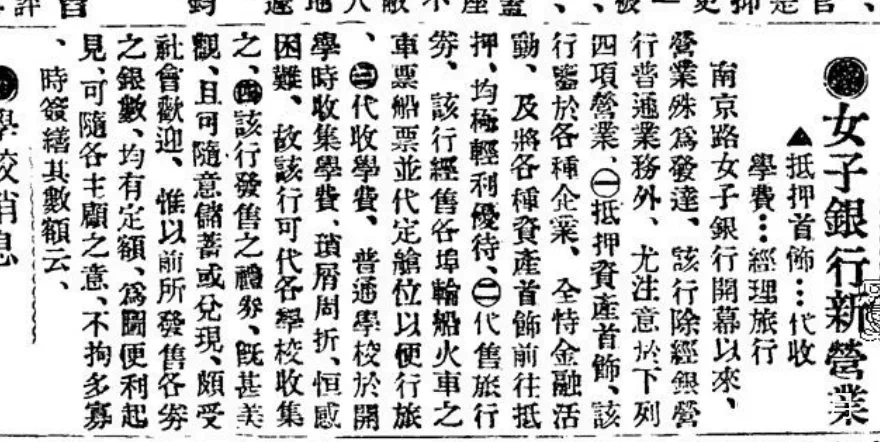 女子銀行新營業
▲抵押首飾…代收
學費…經理旅行
南京路女子銀行開幕以來、
營業殊爲發達、該行除經銀營
行普通業務外、尤注意於下列
四項營業、㊀抵押資產首飾、該
行鑒於各種企業、全恃金融活
動、及將各種資產首飾前往抵
押、均極輕利優待、㊁代售旅行
劵、該行經售各埠輪船火車之
車票船票並代定艙位以便行旅
、㊂代收學費、普通學校於開
學時收集學費、瑣屑周折、恒感
困難、故該行可代各學校收集
之、㊃該行發售之禮劵、既甚美
觀、且可隨意儲蓄或兌現、頗受
社會歡迎、惟以前所發售各劵
之銀數、均有定額、爲圖便利起
見、可隨各主顧之意、不拘多寡
、時簽繕其數額云、
學校消息